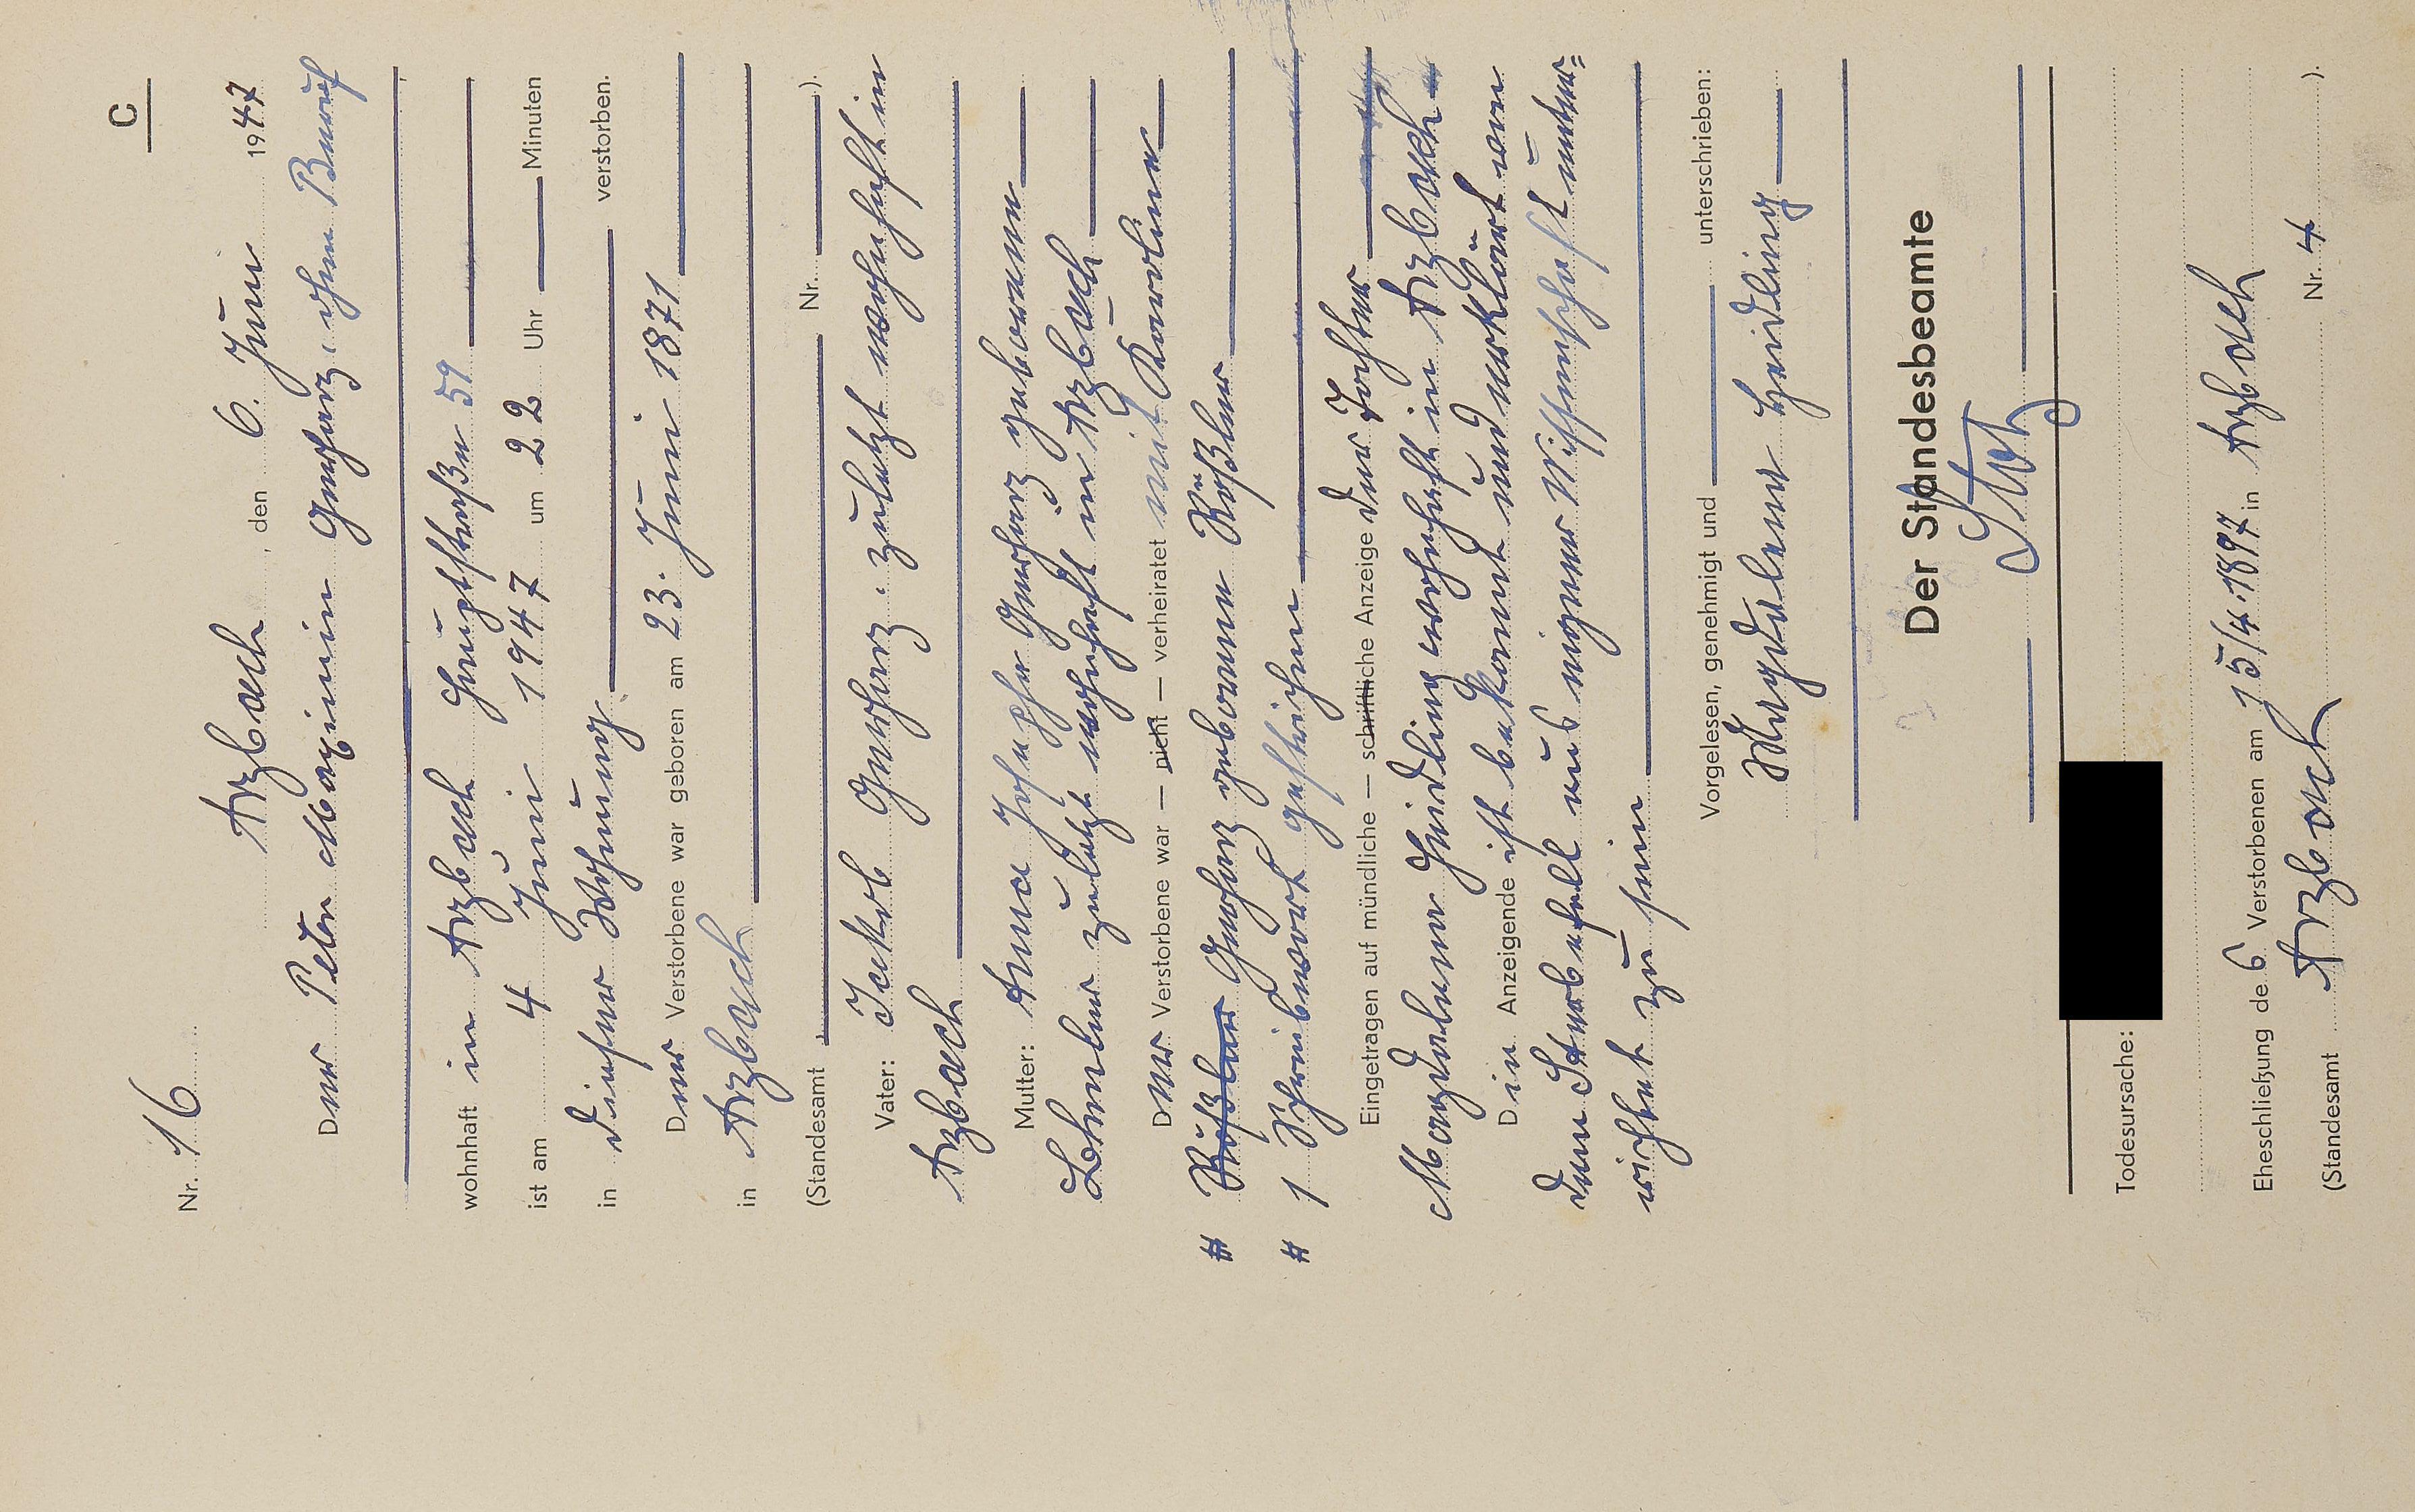 C
Nr. 16
Arzbach, den 6. Juni 1947
Der Peter Maximin Gerharz, ohne Beruf
wohnhaft in Arzbach Hauptstraße 59
ist am 4 Juni 1947 um 22 Uhr Minuten
in dieser Wohnung verstorben.
Der Verstorbene war geboren am 23. Juni 1871
in Arzbach
(Standesamt Nr. ).
Vater: Jakob Gerharz. zuletzt wohnhaft in
Arzbach
Mutter: Anna Gerharz geborene
zuletzt wohnhaft in Arzbach
Der Verstorbene war — nicht — verheiratet mit Karoline
# Gerharz geborene Rößler
# 1 Schreibwort gestrichen
Eingetragen auf mündliche — schriftliche Anzeige der Tochter
Magdalene Heidling wohnhaft in Arzbach
Die Anzeigende ist bekannt und erklärt von
dem Sterbefall aus eigener Wissenschaft unter=
richtet zu sein
Vorgelesen, genehmigt und unterschrieben:
Magdalene Heidling
Der Standesbeamte
Todesursache:
Eheschließung des Verstorbenen am 15/4.1897 in Arzbach
(Standesamt Arzbach Nr. 4 ).